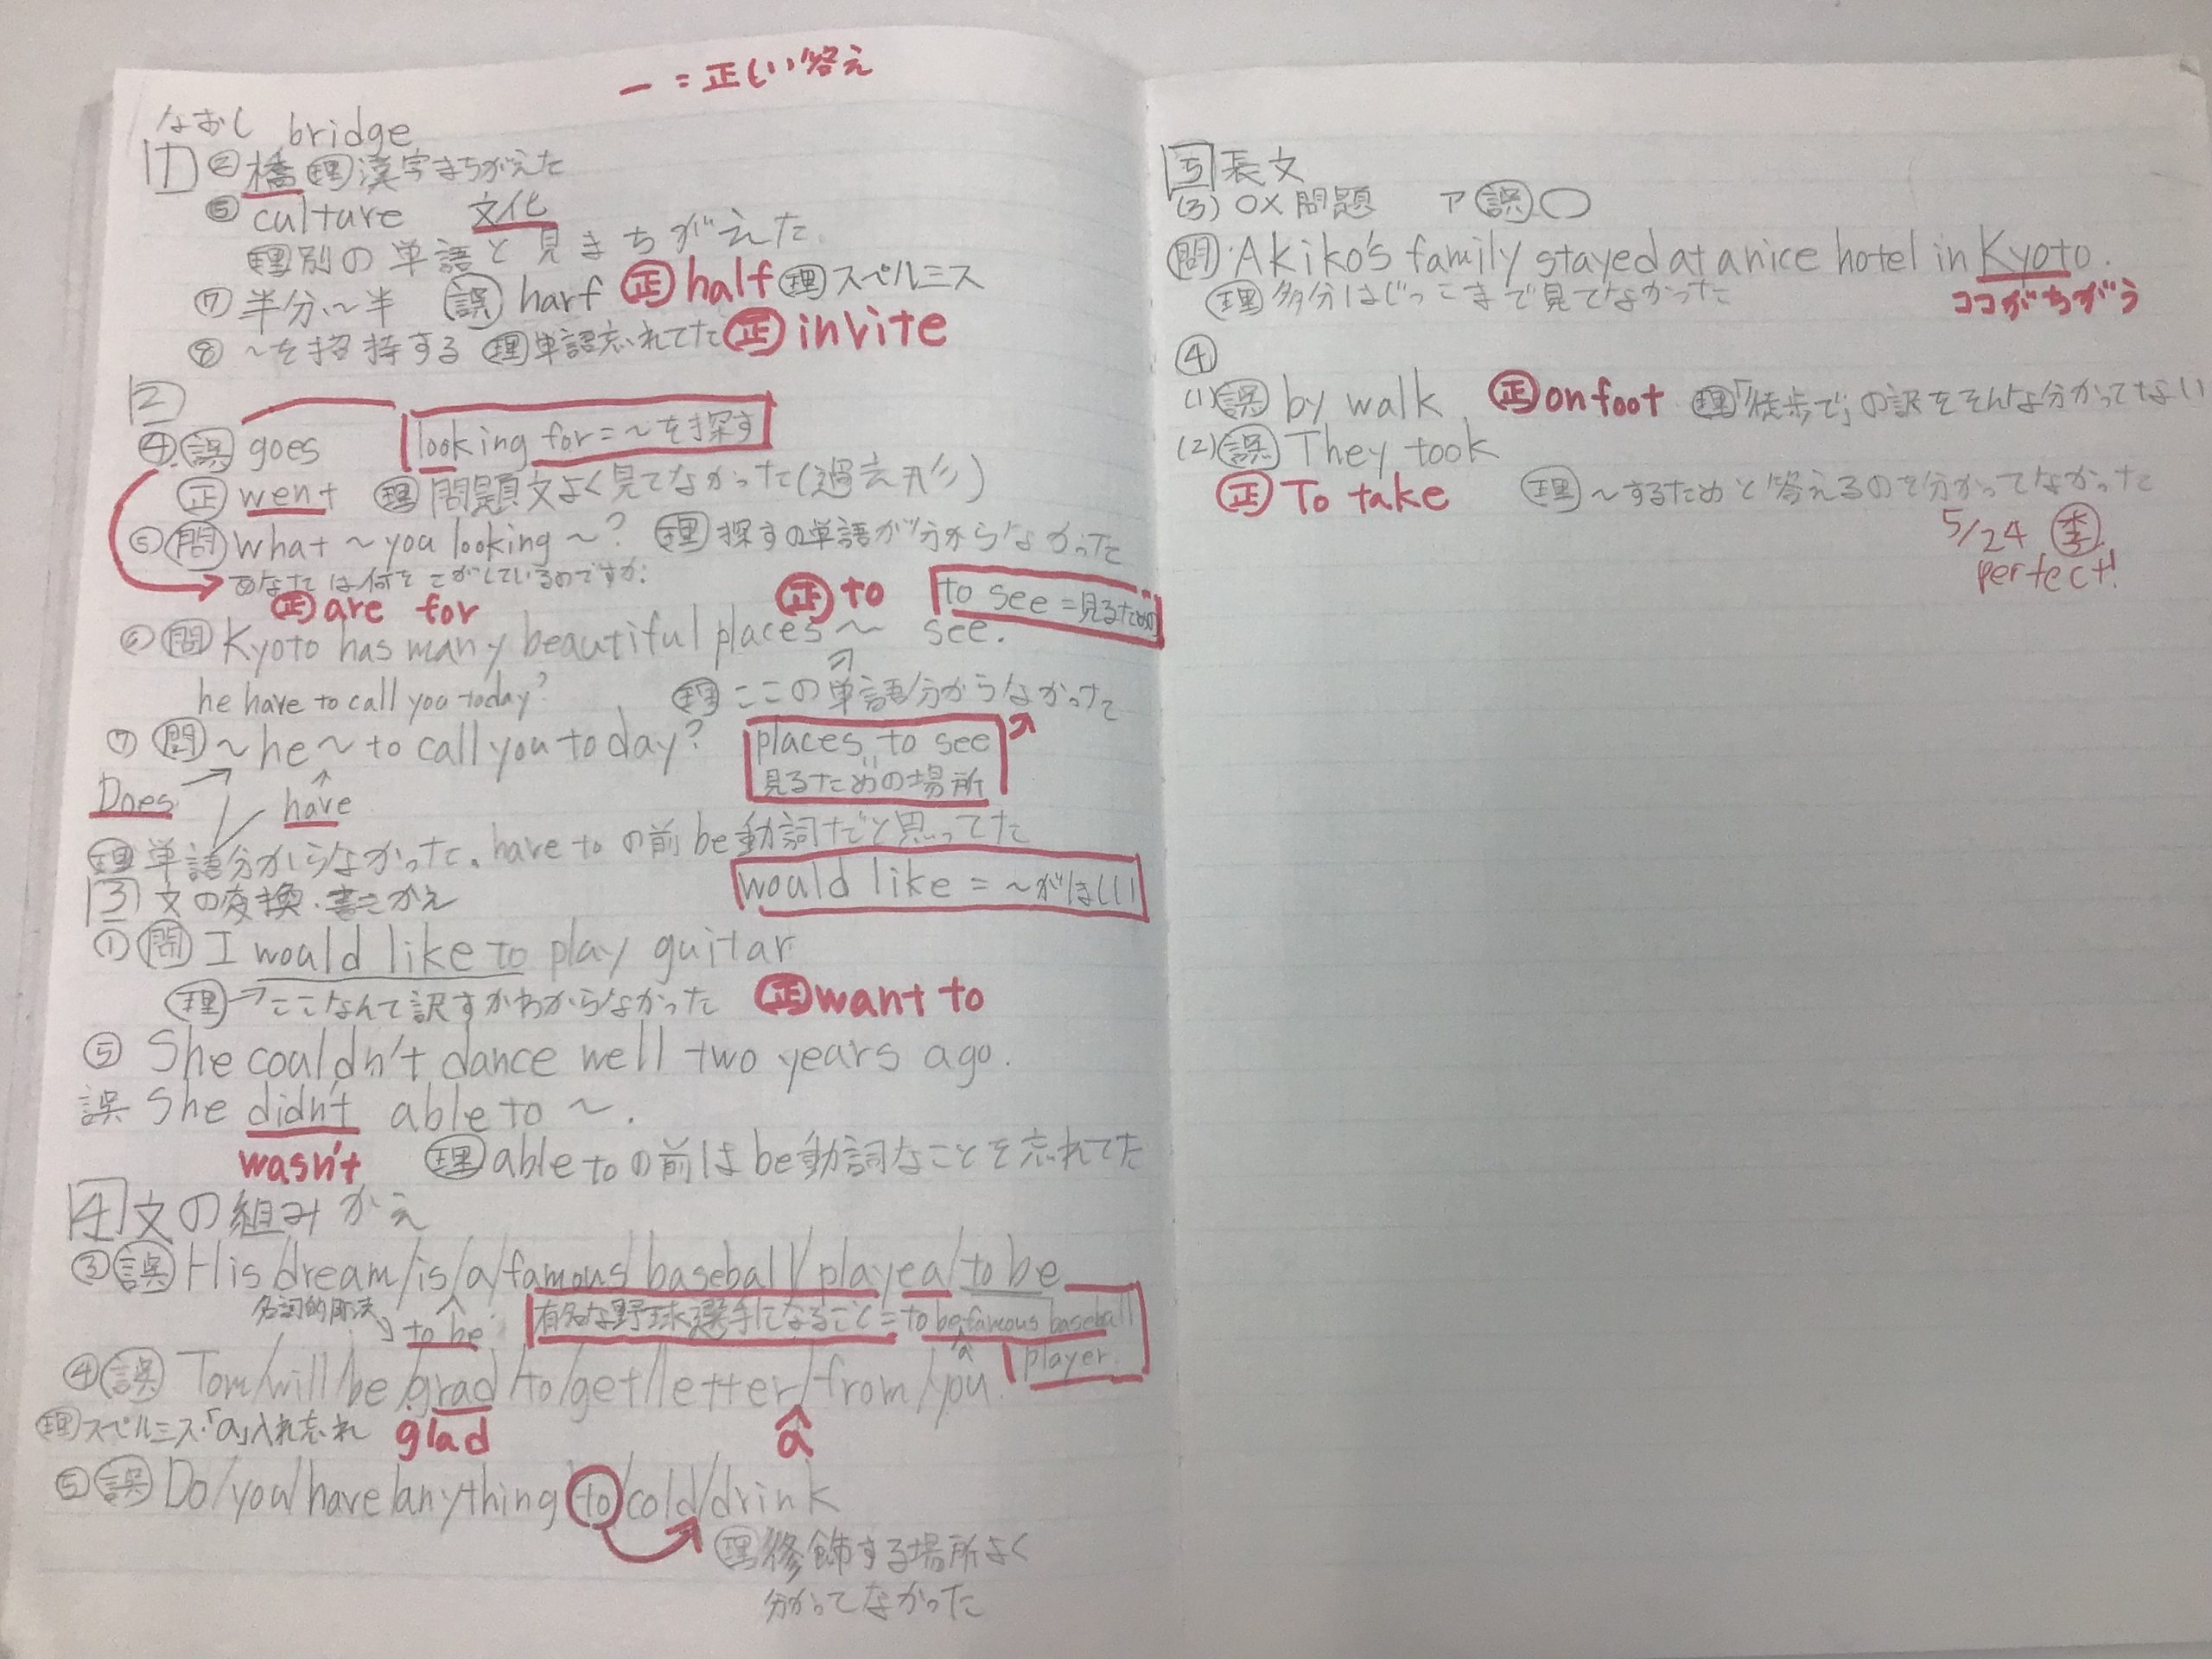 ー = 正しい答え
なおし bridge
1 ② 橋 理 漢字まちがえた
⑤ culture 文化
理 別の単語と見まちがえた
⑦ 半分、～半 誤 harf 正 half 理 スペルミス
⑧ ～を招待する 理 単語忘れてた 正 invite
2
④ 誤 goes looking for = ～を探す
正 went 理 問題文よく見てなかった(過去形)
⑤ 問 What ～ you looking ～? 理 探すの単語が分からなかった
あなたは何をさがしているのですか?
正 are for 正 to to see = 見るための
⑥ 問 Kyoto has many beautiful places ～ see.
he have to call you today? 理 ここの単語分からなかった
⑦ 問 ～ he ～ to call you today? places to see
見るための場所
Does have
理 単語分からなかった。have to の前be動詞だと思ってた
3 文の変換・書きかえ would like = ～がほしい
① 問 I would like to play guitar
理 → ここなんて訳すかわからなかった 正 want to
⑤ She couldn't dance well two years ago.
誤 She didn't able to ～.
wasn't 理 able to の前はbe動詞なことを忘れてた
4 文の組みかえ
③ 誤 His dream/is/a/famous/baseball/playea/to be
名詞的用法 to be 有名な野球選手になること = to be famous baseball
a player.
④ 誤 Tom/will/be/grad/to/get/letter/from/you.
理 スペルミス・「a」入れ忘れ glad a
⑤ 誤 Do/you/have/anything/to/cold/drink
理 修飾する場所よく
分かってなかった
5 長文
(3) ○× 問題 ア 誤 ○
問 Akiko's family stayed at a nice hotel in Kyoto.
理 多分はじっこまで見てなかった ココがちがう
④
(1) 誤 by walk 正 on foot 理「徒歩で」の訳をそんな分かってない
(2) 誤 They took
正 To take 理 ～するためと答えるのを分かってなかった
5/24 李
perfect!